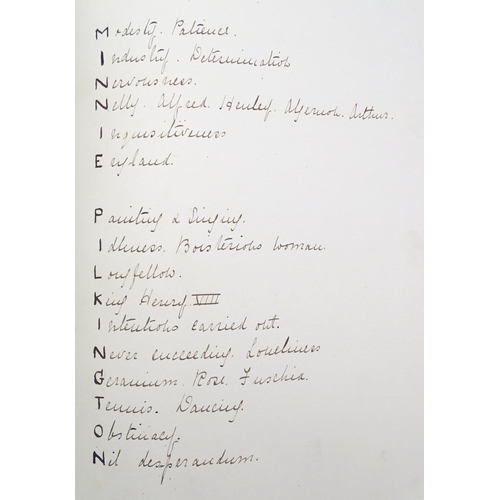 Modesty. Patience.
Industry. Determination
Nervousness.
Nelly. Alfred. Henley. Algernon. Arthur.
Inquisitiveness
England.
Painting & Singing.
Idleness. Boisterious woman.
Longfellow.
King Henry VIII
Intentions carried out.
Never succeeding. Loneliness
Geranium. Rose. Fuschia.
Tennis. Dancing.
Obstinacy.
Nil desperandum.